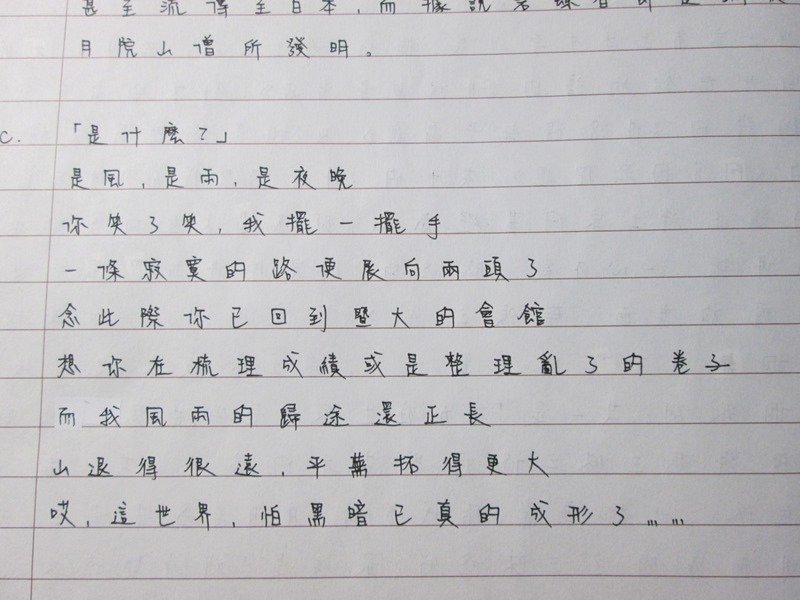 甚至流傳至日本,而據說
月院山僧所發明。
C. 「是什麼?」
是風,是雨,是夜晚
你笑了笑,我擺一擺手
一條寂寞的路便展向兩頭了
念此際你已回到暨大的會館
想你在梳理成績或是整理亂了的卷子
而我風雨的歸途還正長
山退得很遠,平蕪拓得更大
哎,這世界,怕黑暗已真的成形了……